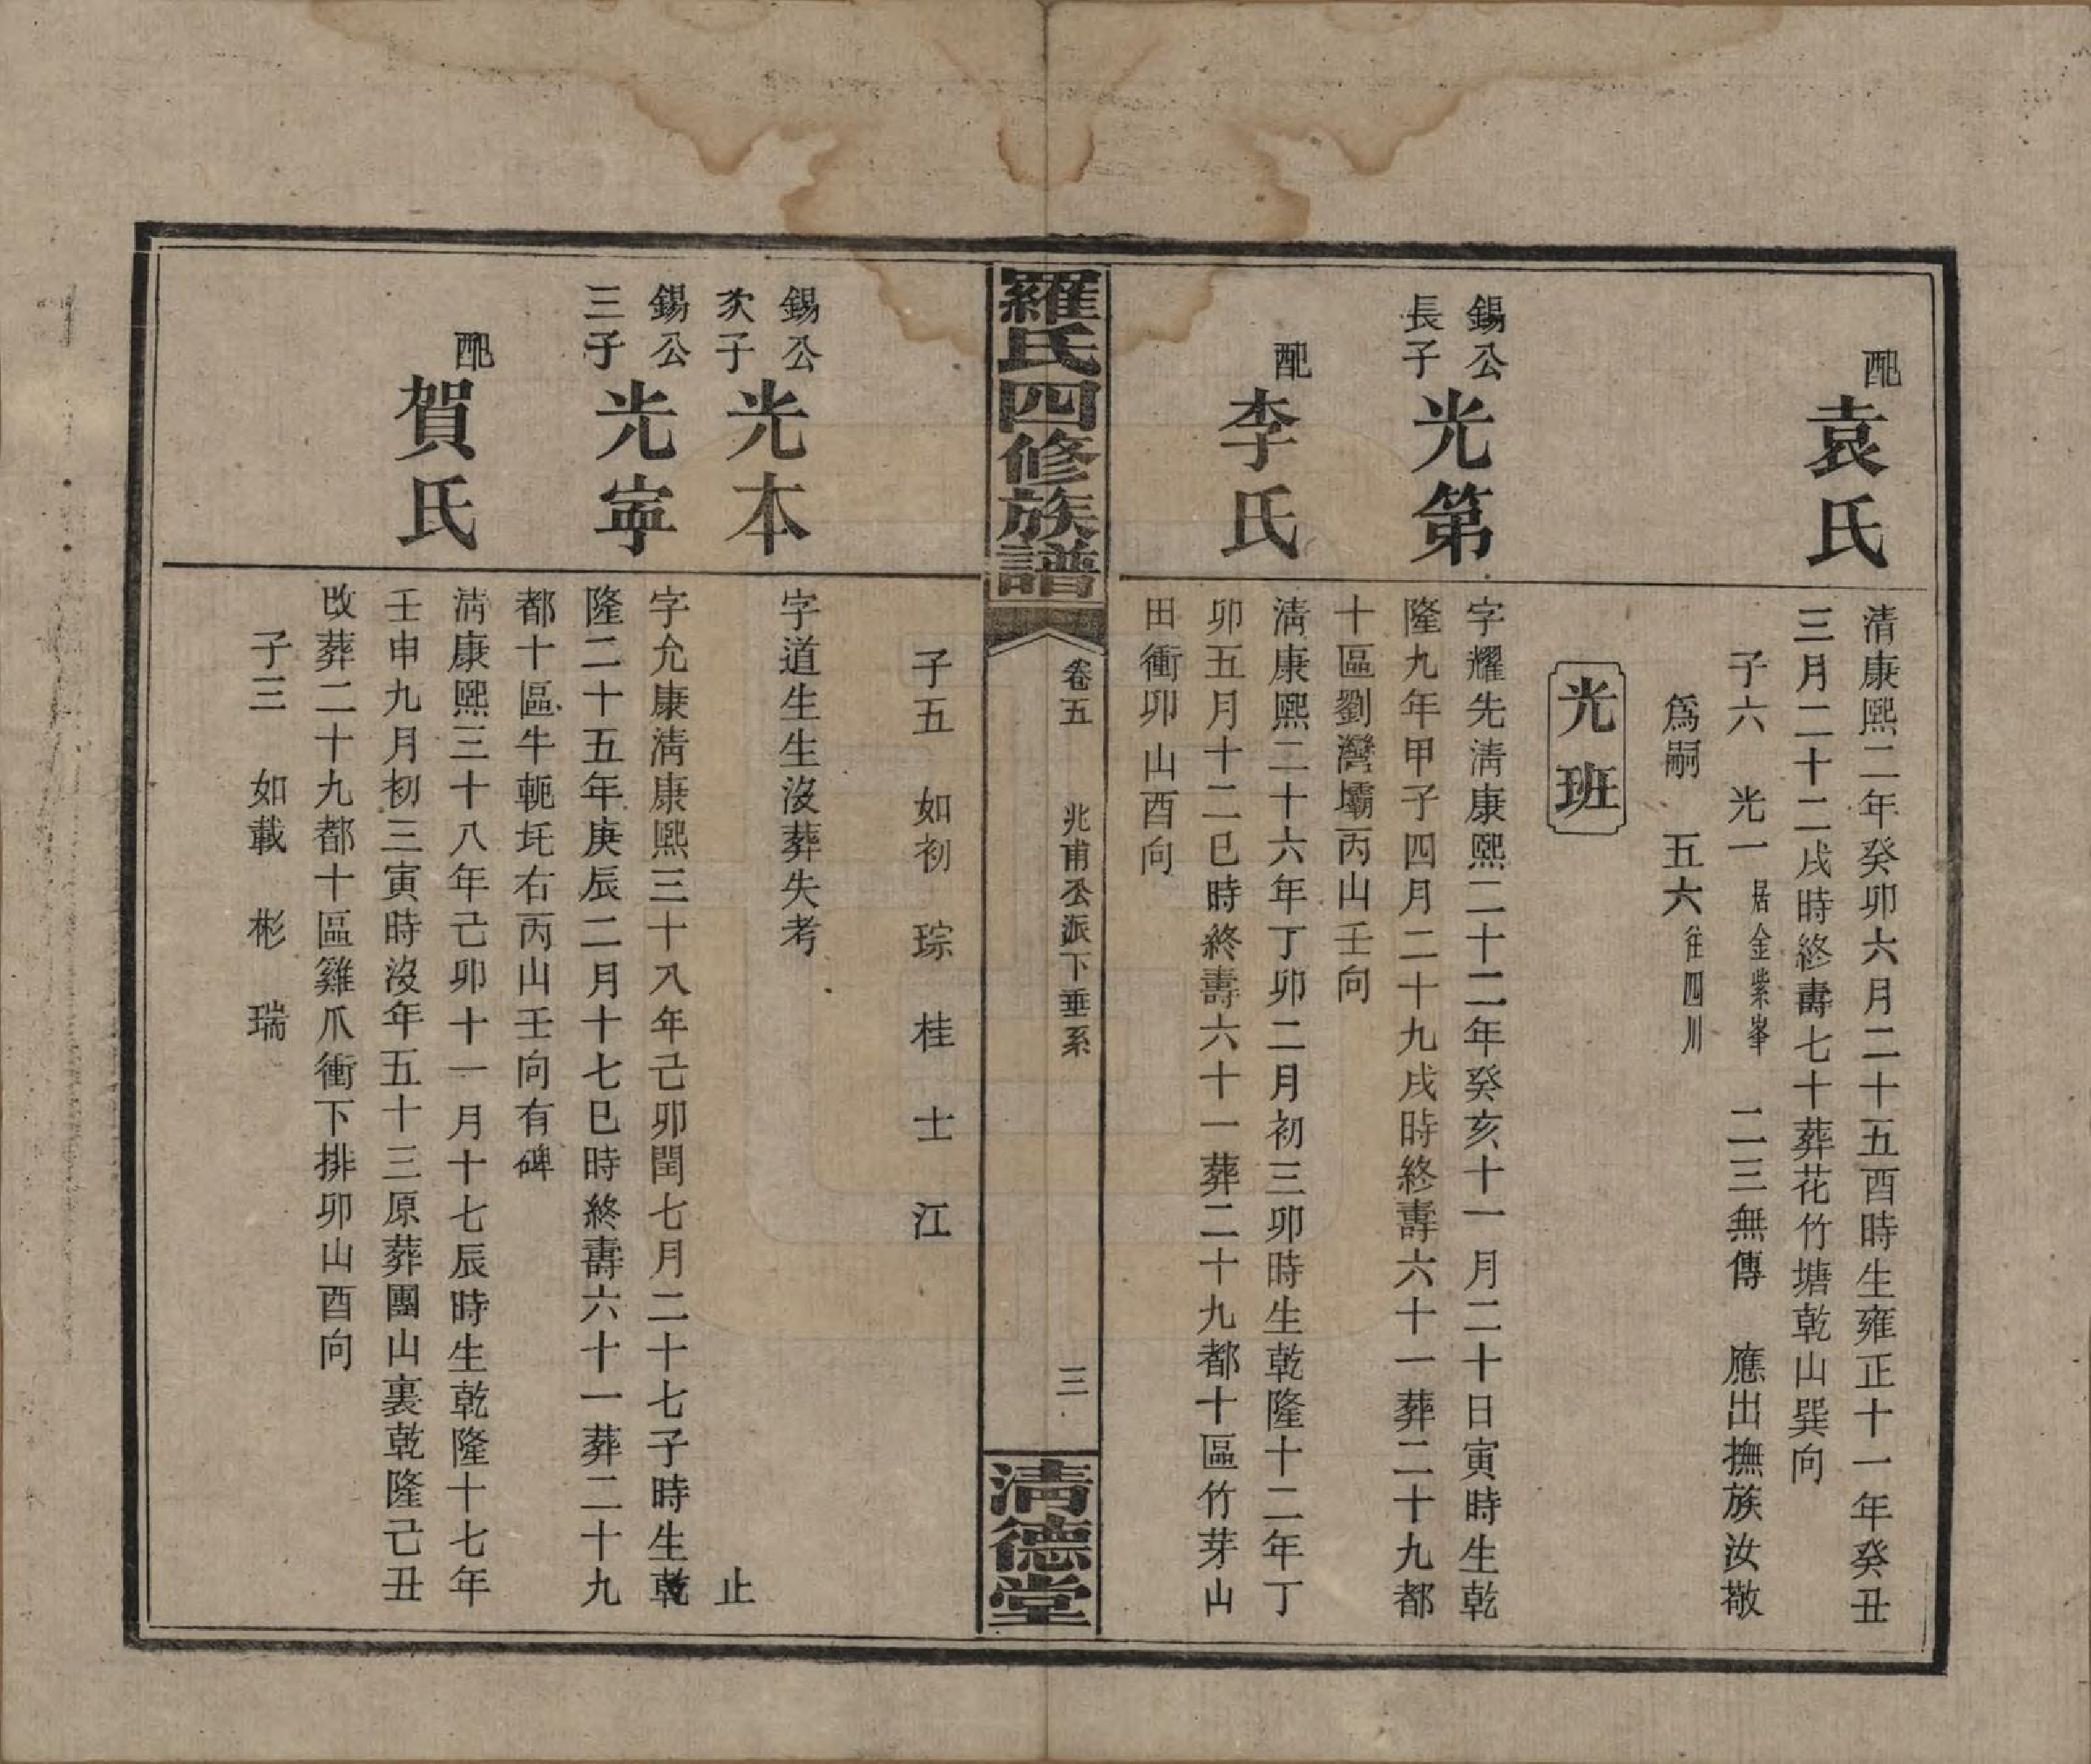 配
袁氏
清康熙二年癸卯六月二十五酉時生雍正十一年癸丑
三月二十二戌時終壽七十葬花竹塘乾山巽向
子六 光一居金紫峯 二三無傳 應出撫族汝敬
爲嗣 五六往四川
光班
錫公
長子
光第
字耀先淸康熙二十二年癸亥十一月二十日寅時生乾
隆九年甲子四月二十九戌時終壽六十一葬二十九都
十區劉灣壩丙山壬向
配
李氏
淸康熙二十六年丁卯二月初三卯時生乾隆十二年丁
卯五月十二巳時終壽六十一葬二十九都十區竹芽山
田衝卯山酉向
羅氏四修族譜
卷五 兆甫公派下垂系
三
淸德堂
子五 如初 琮 桂 士 江
錫公
次子
光本
字道生生沒葬失考
止
錫公
三子
光寜
字允康淸康熙三十八年己卯閏七月二十七子時生乾
隆二十五年庚辰二月十七巳時終壽六十一葬二十九
都十區牛軛圫右丙山壬向有碑
配
賀氏
淸康熙三十八年己卯十一月十七辰時生乾隆十七年
壬申九月初三寅時沒年五十三原葬團山裏乾隆己丑
改葬二十九都十區雞爪衝下排卯山酉向
子三 如載 彬 瑞